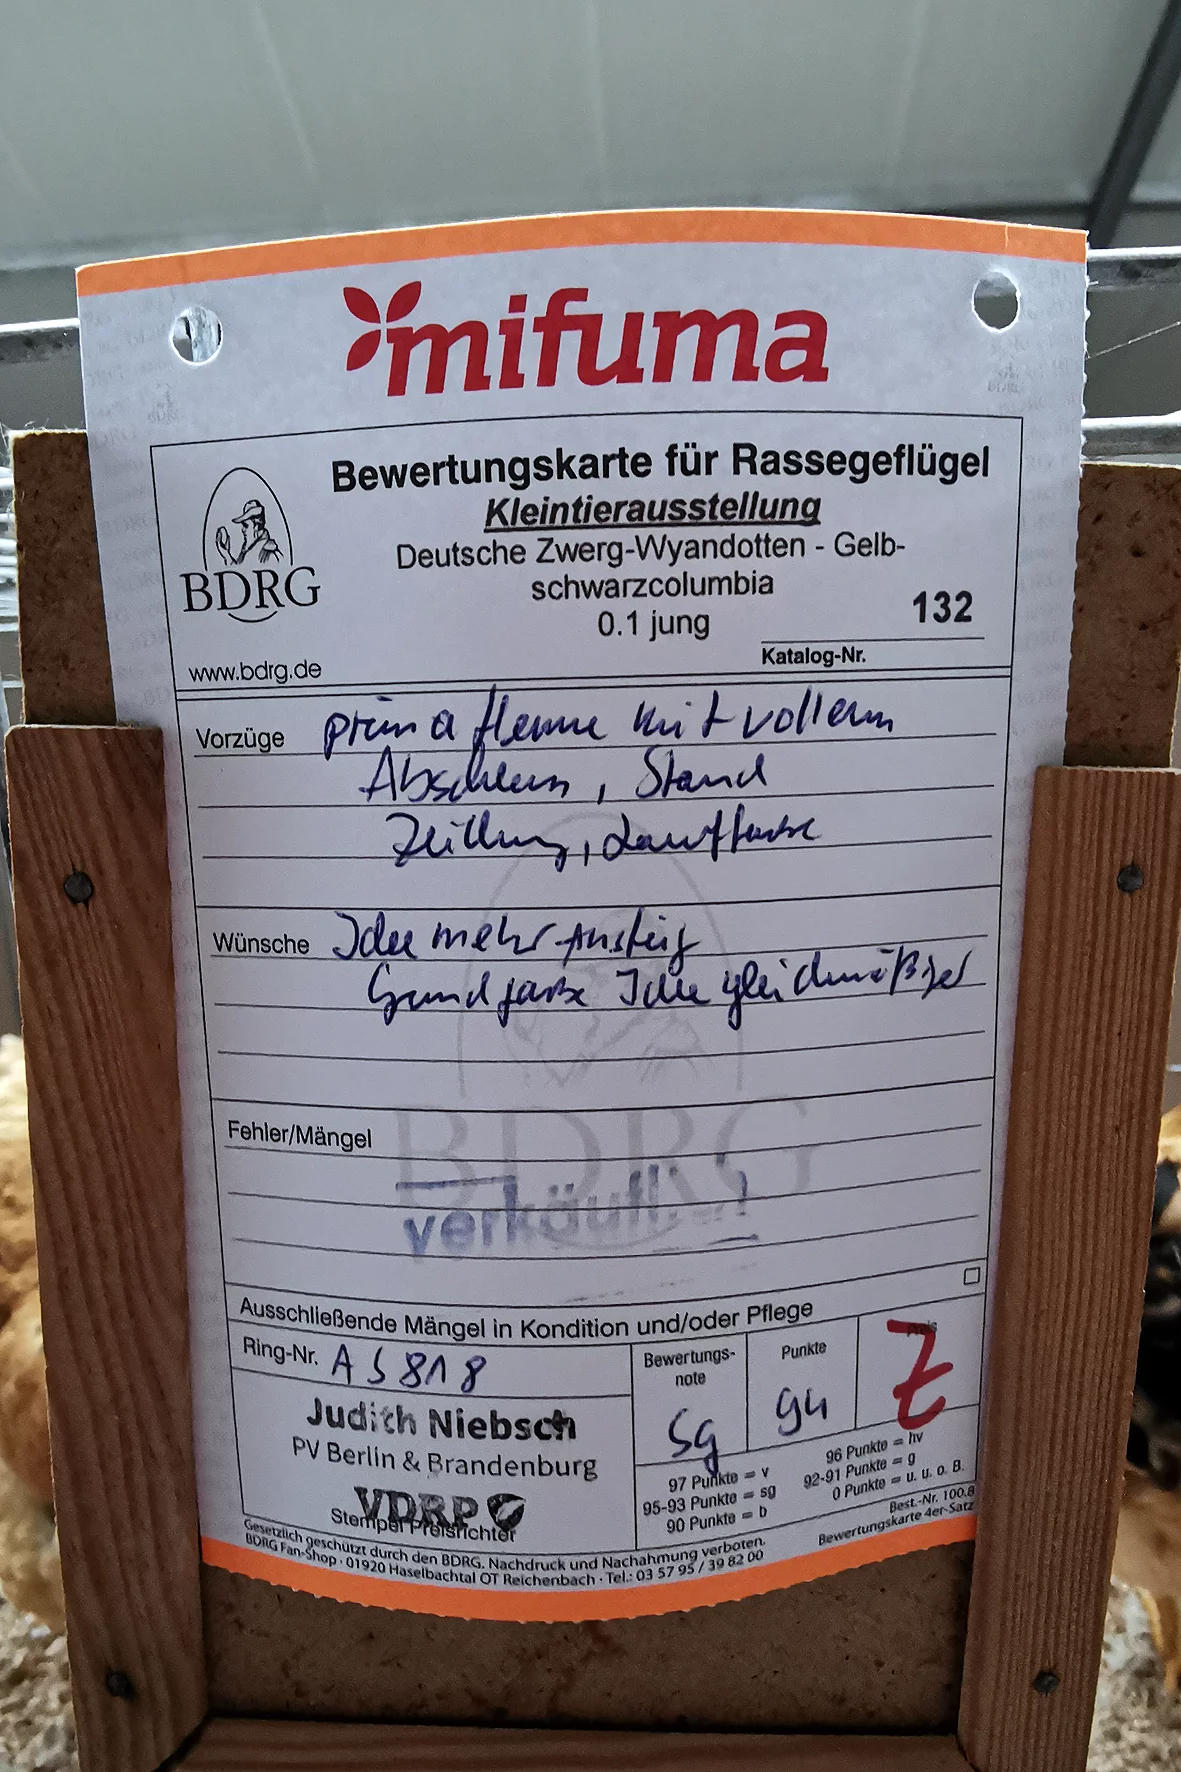 mifuma
Bewertungskarte für Rassegeflügel
Kleintierausstellung
Deutsche Zwerg-Wyandotten - Gelb-
schwarzcolumbia
0.1 jung
132
Katalog-Nr.
BDRG
www.bdrg.de
Vorzüge prima Henne mit vollem
Abschluss, Stand
Zeichnung, Lauffarbe
Wünsche Idee mehr Anstieg
Grundfarbe Idee gleichmäßiger
Fehler/Mängel
BDRG
verkäuflich
Ausschließende Mängel in Kondition und/oder Pflege
Ring-Nr. AS 818
Judith Niebsch
PV Berlin & Brandenburg
VDRP
Stempel Preisrichter
Bewertungs-
note
sg
Punkte
94
Preis
Z
97 Punkte = v
95-93 Punkte = sg
90 Punkte = b
96 Punkte = hv
92-91 Punkte = g
0 Punkte = u. u. o. B.
Best.-Nr. 100.8
Bewertungskarte 4er-Satz
Gesetzlich geschützt durch den BDRG. Nachdruck und Nachahmung verboten.
BDRG Fan-Shop · 01920 Haselbachtal OT Reichenbach · Tel.: 03 57 95 / 39 82 00